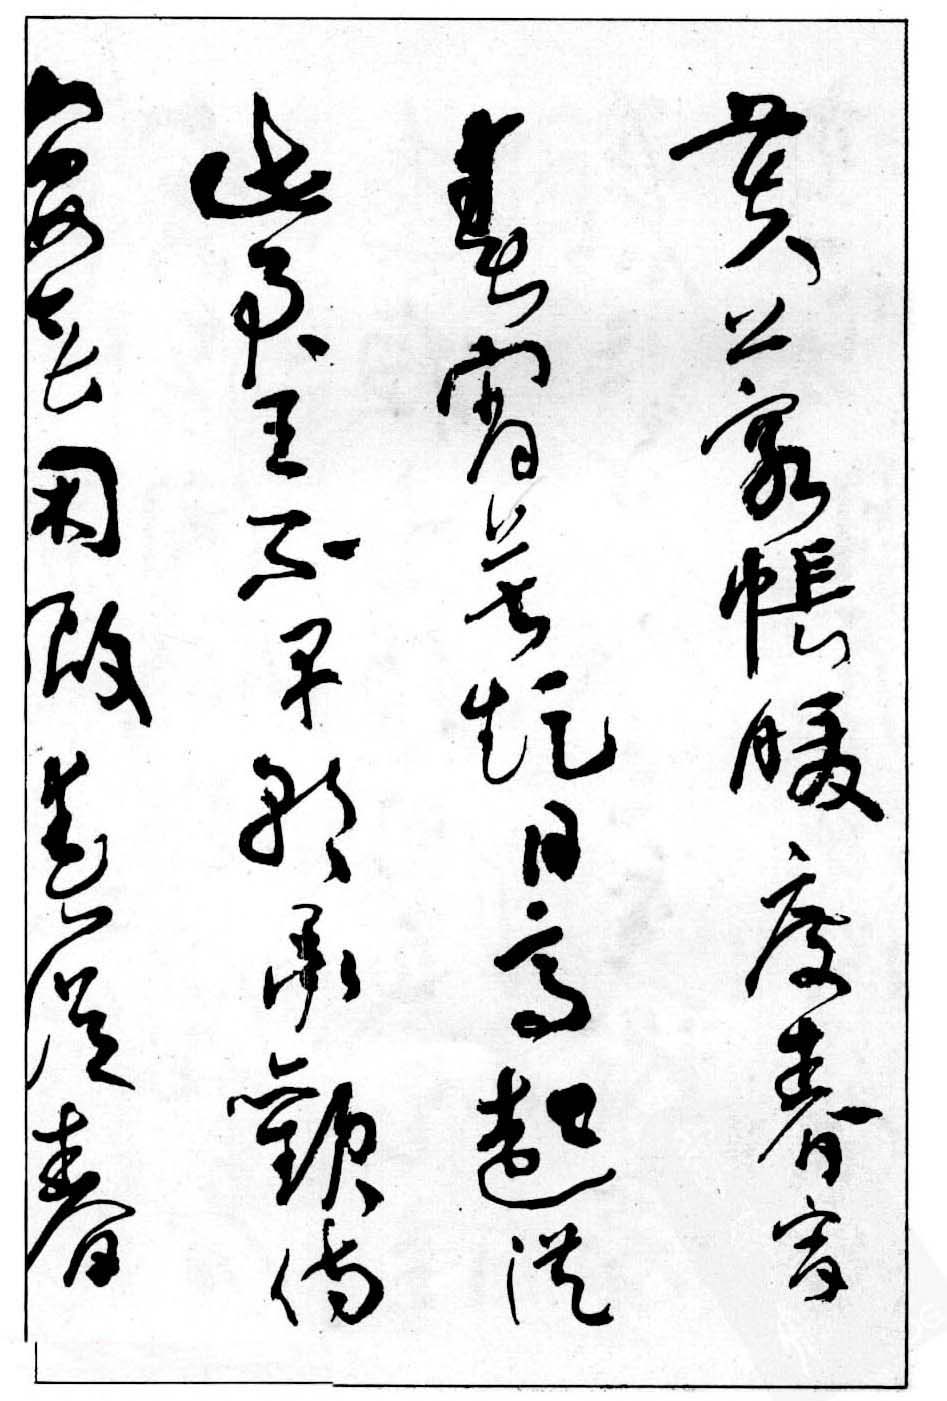 芙蓉帳暖度春宵
春宵苦短日高起從
此君王不早朝承歡侍
宴無閑暇春從春